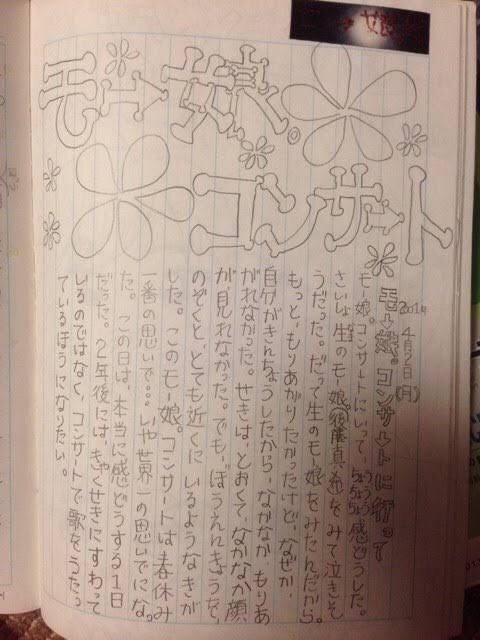 モー娘。
コンサート
2001年
4月2日(月)
モー娘。コンサートに行って
モー娘。コンサートにいって、ちょうちょう感どうした。
さいしょ生のモー娘。(後藤真希)をみて泣きそ
うだった。だって生のモー娘をみたんだから。
もっと、もりあがりたかったけど、なぜか、
自分がきんちょうしたから、なかなか、もりあ
がれなかった。せきは、とおくて、なかなか顔
が、見れなかった。でも、ぼうえんきょうを、
のぞくと、とても近くにいるようなきが
した。このモー娘。コンサートは春休み
一番の思いで。。。いや世界一の思いでになっ
た。この日は、本当に感どうする1日
だった。2年後には、きゃくせきにすわって
いるのではなく、コンサートで歌をうたっ
ているほうになりたい。